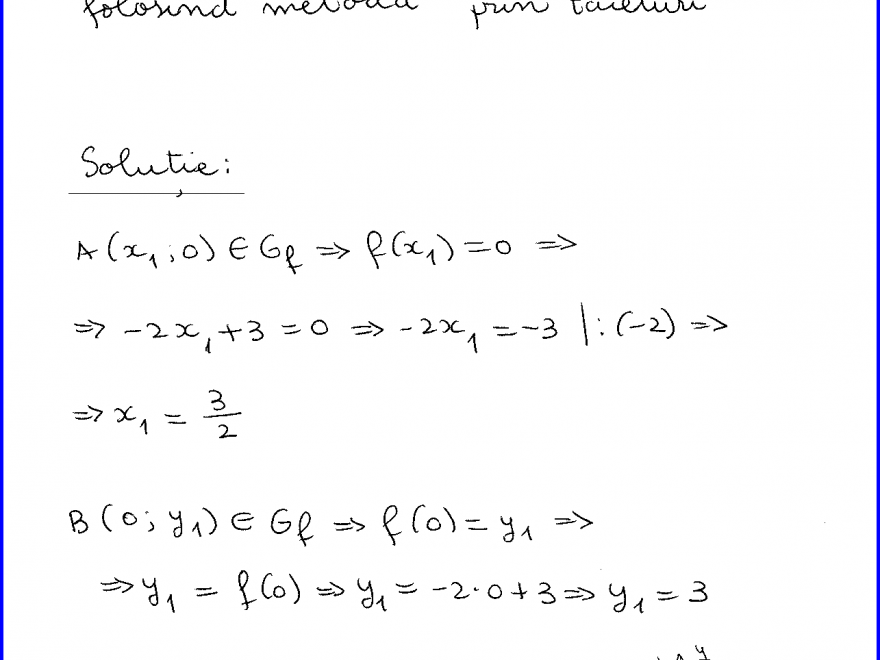 folosind metoda prin tăieturi
Soluție:
A(x₁;0) ∈ Gf ⇒ f(x₁)=0 ⇒
⇒ -2x₁+3=0 ⇒ -2x₁=-3 |:(-2) ⇒
⇒ x₁ = 3/2
B(0;y₁) ∈ Gf ⇒ f(0)=y₁ ⇒
⇒ y₁ = f(0) ⇒ y₁ = -2·0+3 ⇒ y₁ = 3
y